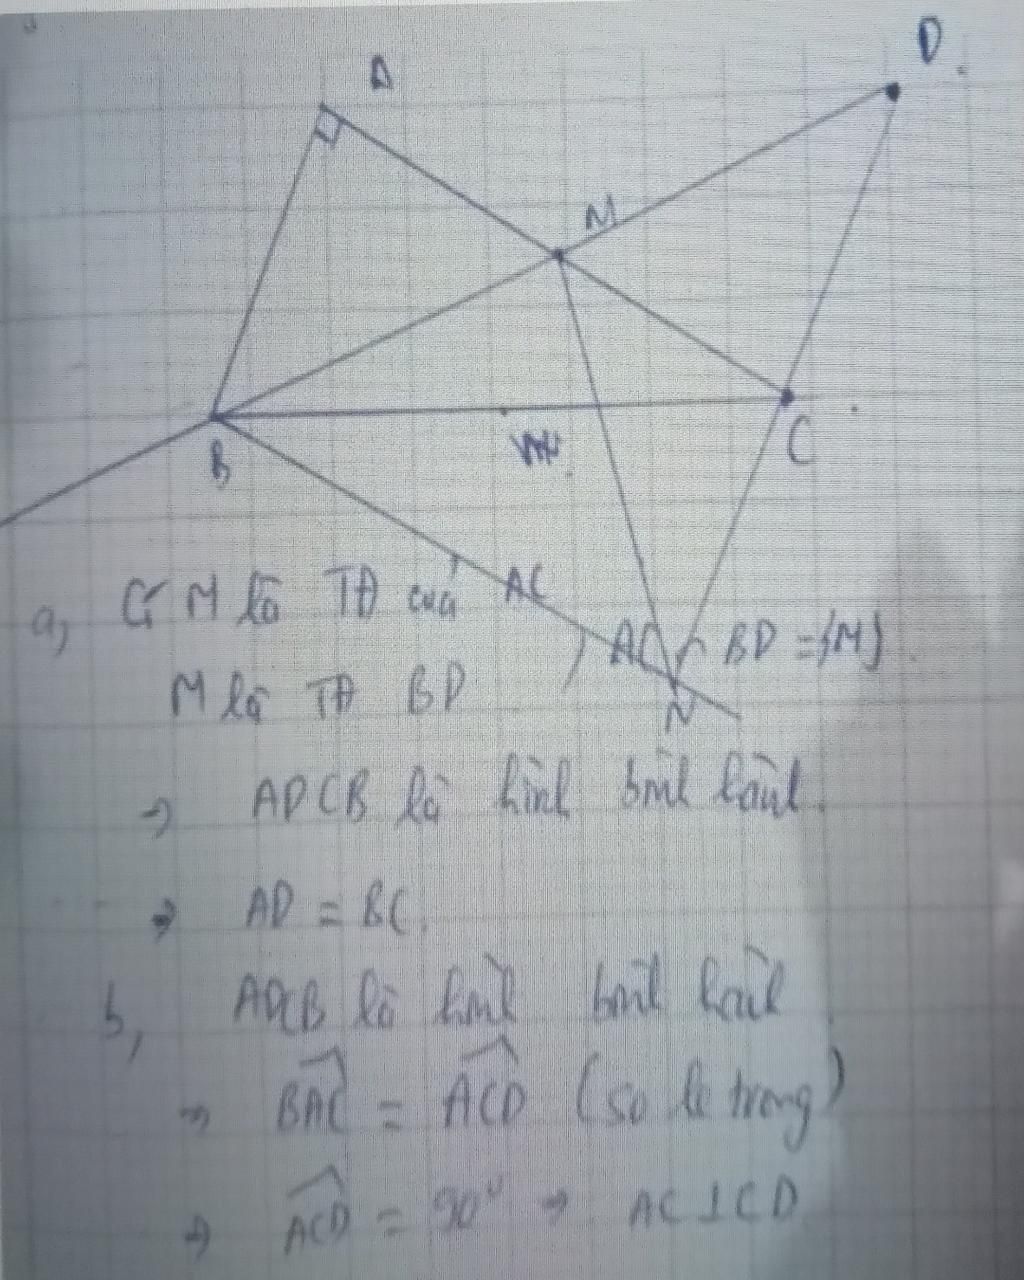 A
D
M
B
C
N
a, Có M là TĐ của AC
AC ∩ BD = {M}
M là TĐ BD
⇒ ADCB là hình bình hành
⇒ AD = BC
b, ADCB là hình bình hành
⇒ BAC = ACD (so le trong)
⇒ ACD = 90° ⇒ AC ⊥ CD